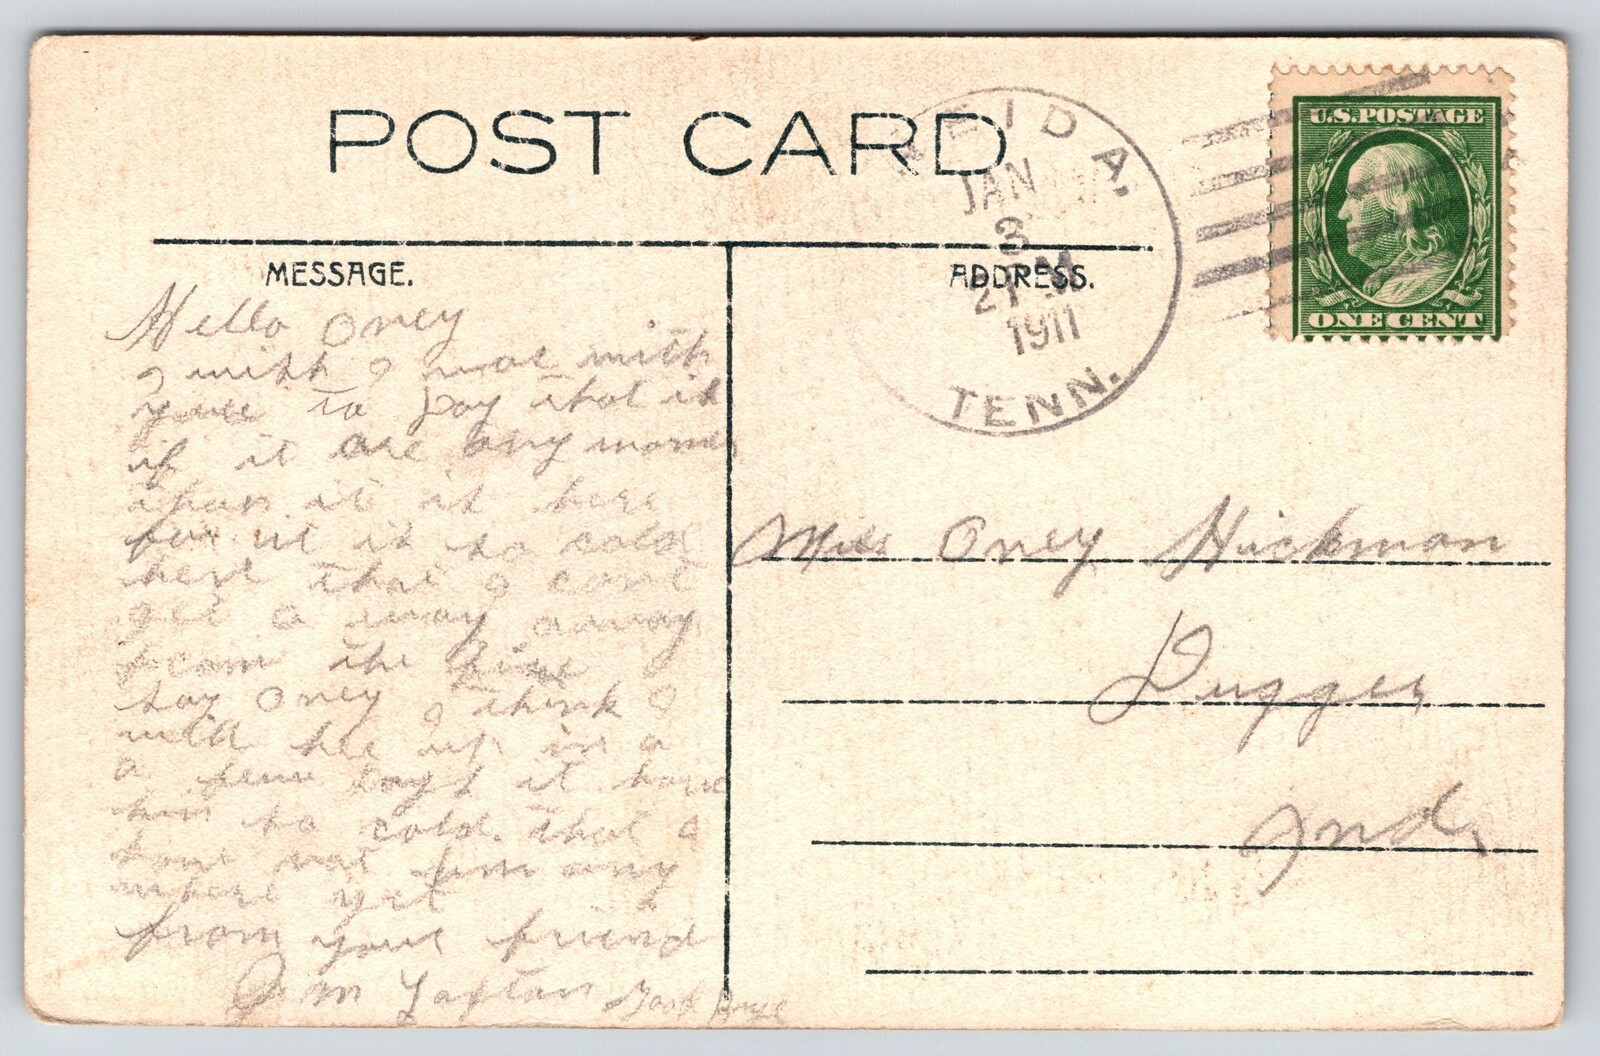 POST CARD
EIDA,
JAN
3
2 PM
1911
TENN.
U.S. POSTAGE
ONE CENT
MESSAGE.
ADDRESS.
Hello Oney
I wish I was with
you to day that is
if it are any warmer
than it is here
for it is so cold
here that I cant
get a way away
from the fire
Say Oney I think I
will be up in a
a few days it have
bin so cold. that I
have not bin any
where yet
from your friend
Jim Laxton Good Bye
Miss Oney Hickman
Dugger
Ind,